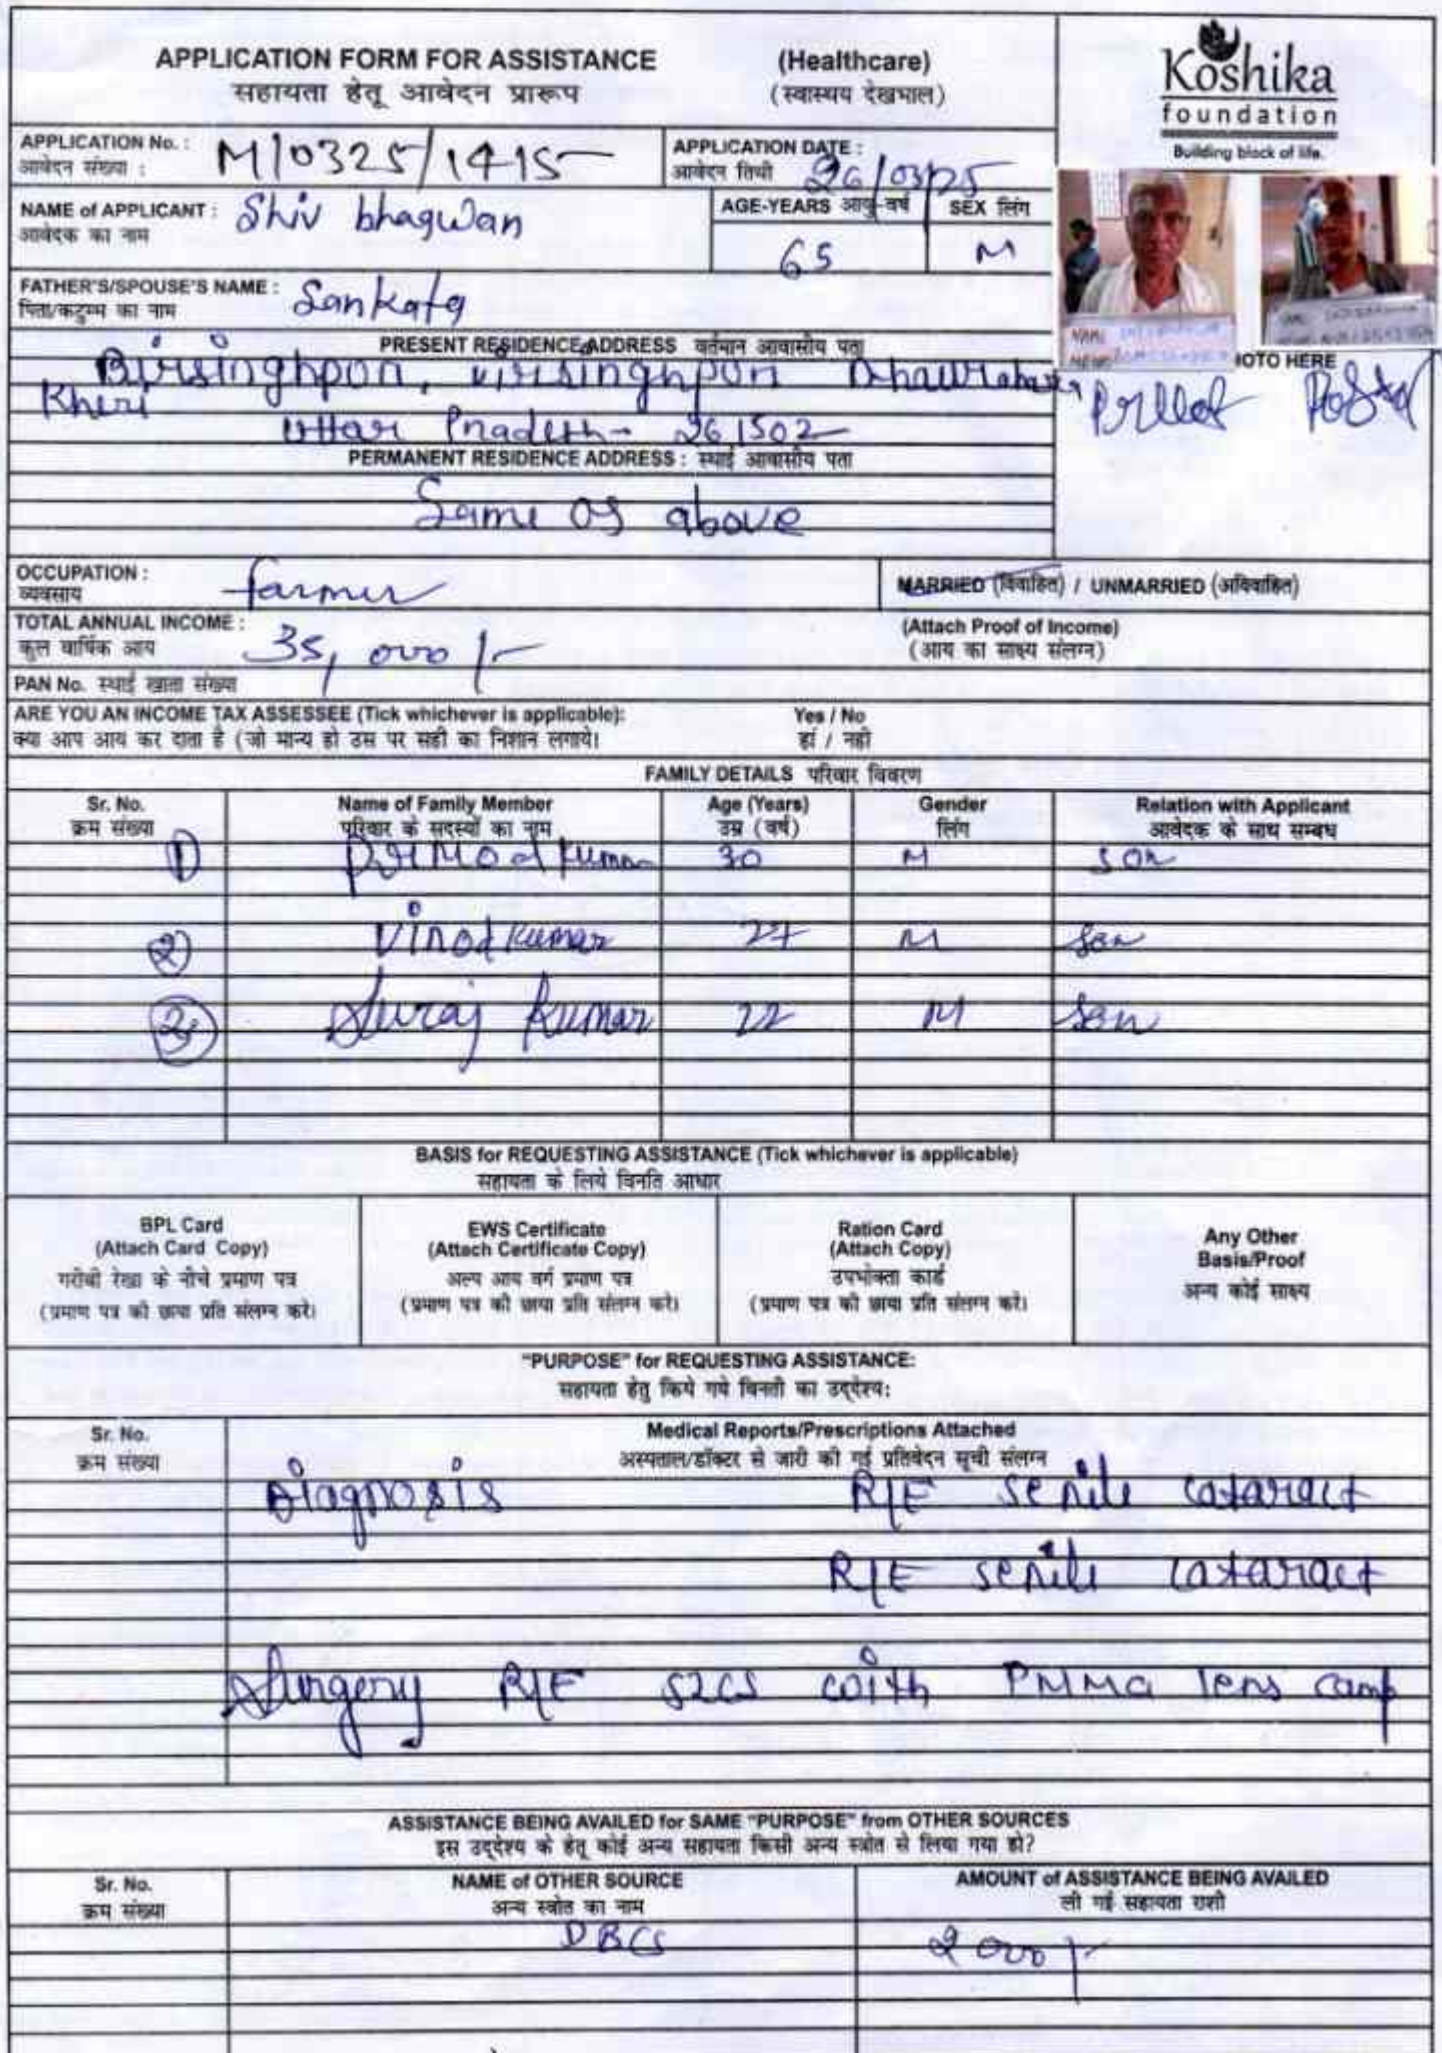 APPLICATION FORM FOR ASSISTANCE (Healthcare)
सहायता हेतू आवेदन प्रारूप (स्वास्थय देखभाल)
Koshika
foundation
Building block of life.
APPLICATION No. : M/0325/1415
आवेदन संख्या :
APPLICATION DATE : 26/03/25
आवेदन तिथी
NAME of APPLICANT : Shiv bhagwan
आवेदक का नाम
AGE-YEARS आयु-वर्ष SEX लिंग
65 M
FATHER'S/SPOUSE'S NAME : Sankata
पिता/कटुम्ब का नाम
PRESENT RESIDENCE ADDRESS वर्तमान आवासीय पता
HOTO HERE
Birsinghpur, virisinghpur Dhaurahara
Kheri
Uttar Pradesh - 261502
PERMANENT RESIDENCE ADDRESS : स्थाई आवासीय पता
Same as above
OCCUPATION : farmer
व्यवसाय
MARRIED (विवाहित) / UNMARRIED (अविवाहित)
TOTAL ANNUAL INCOME : 35,000/-
कुल वार्षिक आय
(Attach Proof of Income)
(आय का साक्ष्य संलग्न)
PAN No. स्थाई खाता संख्या
ARE YOU AN INCOME TAX ASSESSEE (Tick whichever is applicable): Yes / No
क्या आप आय कर दाता है (जो मान्य हो उस पर सही का निशान लगाये। हां / नही
FAMILY DETAILS परिवार विवरण
Sr. No. Name of Family Member Age (Years) Gender Relation with Applicant
क्रम संख्या परिवार के सदस्यों का नाम उम्र (वर्ष) लिंग आवेदक के साथ सम्बध
1 Primod Kumar 30 M son
2 Vinod Kumar 27 M Son
3 Suraj Kumar 22 M Son
BASIS for REQUESTING ASSISTANCE (Tick whichever is applicable)
सहायता के लिये विनति आधार
BPL Card
(Attach Card Copy)
गरीबी रेखा के नीचे प्रमाण पत्र
(प्रमाण पत्र की छाया प्रति संलग्न करे।
EWS Certificate
(Attach Certificate Copy)
अल्प आय वर्ग प्रमाण पत्र
(प्रमाण पत्र की छाया प्रति संलग्न करे।
Ration Card
(Attach Copy)
उपभोक्ता कार्ड
(प्रमाण पत्र की छाया प्रति संलग्न करे।
Any Other
Basis/Proof
अन्य कोई साक्ष्य
"PURPOSE" for REQUESTING ASSISTANCE:
सहायता हेतु किये गये विनती का उद्देश्य:
Sr. No. Medical Reports/Prescriptions Attached
क्रम संख्या अस्पताल/डॉक्टर से जारी की गई प्रतिवेदन सूची संलग्न
Diagnosis R/E senile cataract
R/E senile cataract
Surgery R/E SICS with PMMA lens camp
ASSISTANCE BEING AVAILED for SAME "PURPOSE" from OTHER SOURCES
इस उद्देश्य के हेतू कोई अन्य सहायता किसी अन्य स्त्रोत से लिया गया हो?
Sr. No. NAME of OTHER SOURCE AMOUNT of ASSISTANCE BEING AVAILED
क्रम संख्या अन्य स्त्रोत का नाम ली गई सहायता राशी
DBCS 2000/-